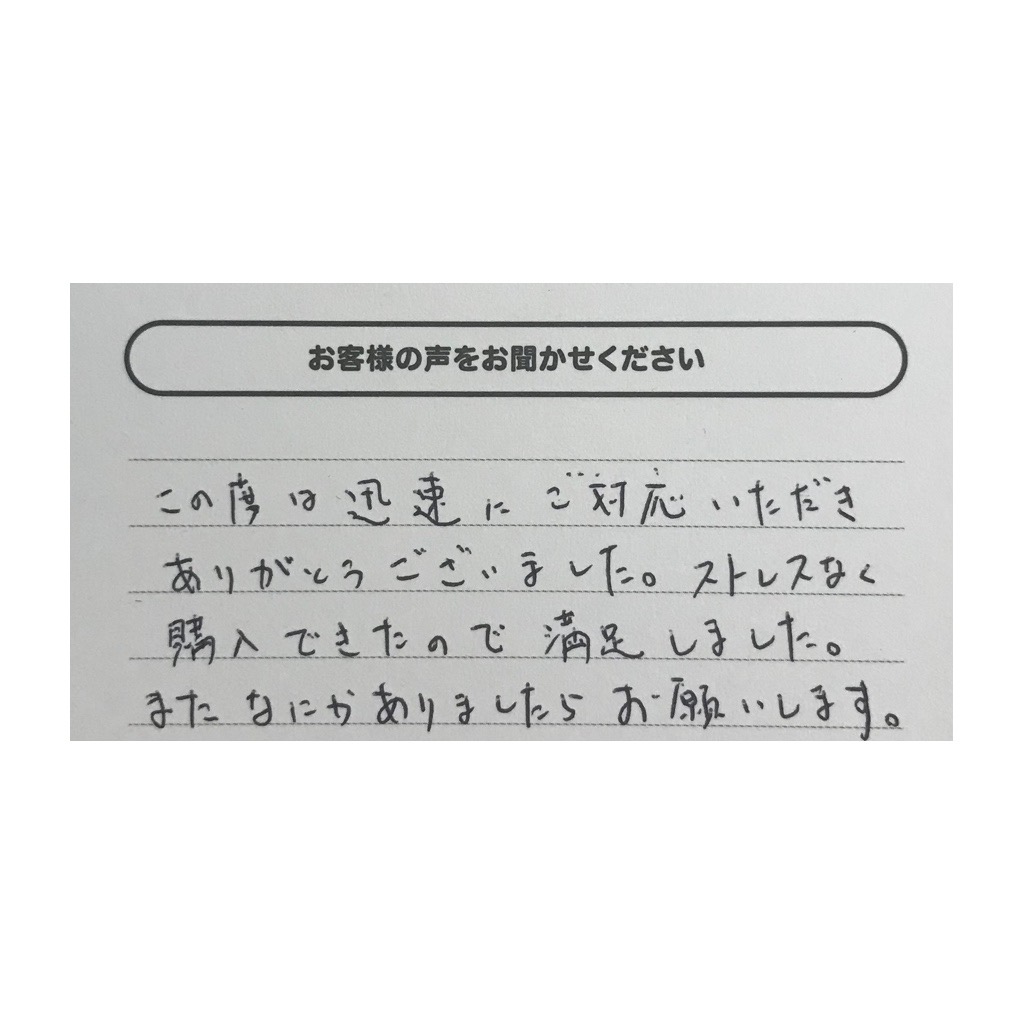 お客様の声をお聞かせください
この度は迅速にご対応いただき
ありがとうございました。ストレスなく
購入できたので満足しました。
またなにかありましたらお願いします。